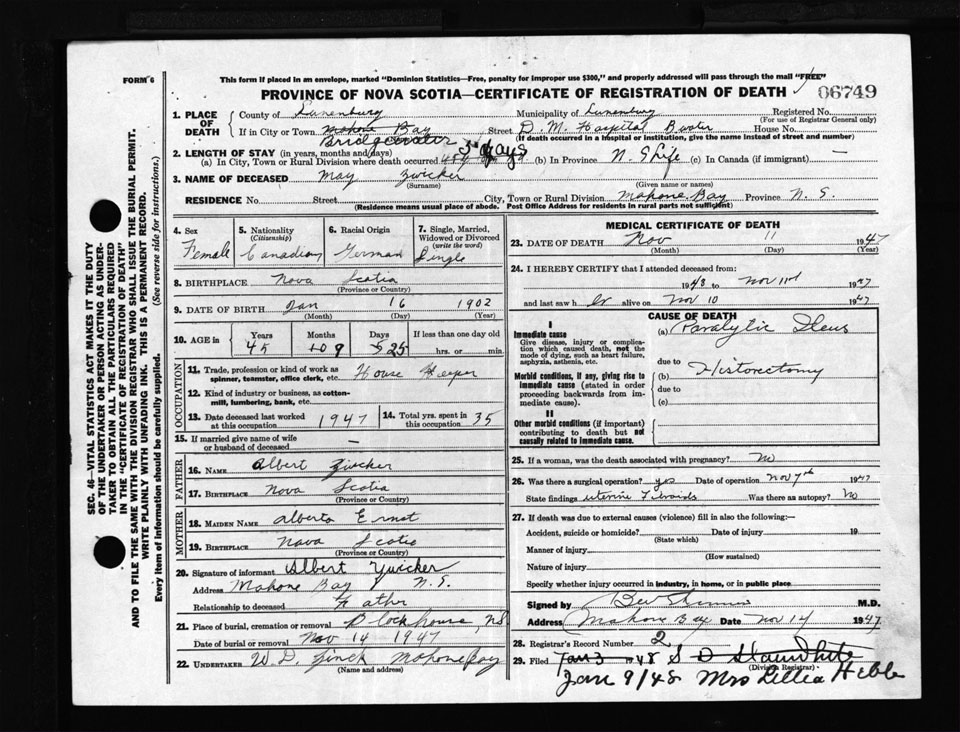 FORM 6
This form if placed in an envelope, marked "Dominion Statistics—Free, penalty for improper use $300," and properly addressed will pass through the mail "FREE"
PROVINCE OF NOVA SCOTIA—CERTIFICATE OF REGISTRATION OF DEATH
06749
1. PLACE OF DEATH
County of Lunenburg Municipality of Lunenburg Registered No.
(For use of Registrar General only)
If in City or Town Mahone Bay Street D. M. Hospital House No.
Bridgewater (If death occurred in a hospital or institution, give the name instead of street and number)
2. LENGTH OF STAY (in years, months and days) 3 days
(a) In City, Town or Rural Division where death occurred (b) In Province N. S Life (c) In Canada (if immigrant) —
3. NAME OF DECEASED May Zwicker
(Surname) (Given name or names)
RESIDENCE No. Street City, Town or Rural Division Mahone Bay Province N. S.
(Residence means usual place of abode. Post Office Address for residents in rural parts not sufficient)
4. Sex Female
5. Nationality (Citizenship) Canadian
6. Racial Origin German
7. Single, Married, Widowed or Divorced (write the word) Single
8. BIRTHPLACE Nova Scotia
(Province or Country)
9. DATE OF BIRTH Jan 16 1902
(Month) (Day) (Year)
10. AGE in Years Months Days If less than one day old
45 9 25 hrs. or min.
OCCUPATION
11. Trade, profession or kind of work as spinner, teamster, office clerk, etc. House Keeper
12. Kind of industry or business, as cotton-mill, lumbering, bank, etc.
13. Date deceased last worked at this occupation 1947
14. Total yrs. spent in this occupation 35
15. If married give name of wife or husband of deceased —
FATHER
16. NAME Albert Zwicker
17. BIRTHPLACE Nova Scotia
(Province or Country)
MOTHER
18. MAIDEN NAME Alberta Ernst
19. BIRTHPLACE Nova Scotia
(Province or Country)
20. Signature of informant Albert Zwicker
Address Mahone Bay N. S.
Relationship to deceased Father
21. Place of burial, cremation or removal Blockhouse, NS
Date of burial or removal Nov 14 1947
22. UNDERTAKER W. D. Zinck Mahone Bay
(Name and address)
MEDICAL CERTIFICATE OF DEATH
23. DATE OF DEATH Nov 11 1947
(Month) (Day) (Year)
24. I HEREBY CERTIFY that I attended deceased from:
1943 to Nov 11 1947
and last saw her alive on Nov 10 1947
CAUSE OF DEATH
I
Immediate cause
Give disease, injury or complication which caused death, not the mode of dying, such as heart failure, asphyxia, asthenia, etc.
(a) Paralytic Ileus
due to
Morbid conditions, if any, giving rise to immediate cause (stated in order proceeding backwards from immediate cause).
(b) Historectomy
due to
(c)
II
Other morbid conditions (if important) contributing to death but not causally related to immediate cause.
25. If a woman, was the death associated with pregnancy? No
26. Was there a surgical operation? yes Date of operation Nov 7th 1947
State findings uterine Fibroids Was there an autopsy? No
27. If death was due to external causes (violence) fill in also the following:—
Accident, suicide or homicide? Date of injury 19
(State which)
Manner of injury
(How sustained)
Nature of injury
Specify whether injury occurred in industry, in home, or in public place
Signed by M.D.
Address Mahone Bay Date Nov 14 1947
28. Registrar's Record Number 2
29. Filed Jan 3 1948
(Division Registrar)
Jan 9/48 Mrs Lellia Hebb
SEC. 46—VITAL STATISTICS ACT MAKES IT THE DUTY
OF THE UNDERTAKER OR PERSON ACTING AS UNDERTAKER TO OBTAIN ALL THE PARTICULARS REQUIRED
IN THE "CERTIFICATE OF REGISTRATION OF DEATH"
AND TO FILE THE SAME WITH THE DIVISION REGISTRAR WHO SHALL ISSUE THE BURIAL PERMIT.
WRITE PLAINLY WITH UNFADING INK. THIS IS A PERMANENT RECORD.
Every item of information should be carefully supplied. (See reverse side for instructions.)